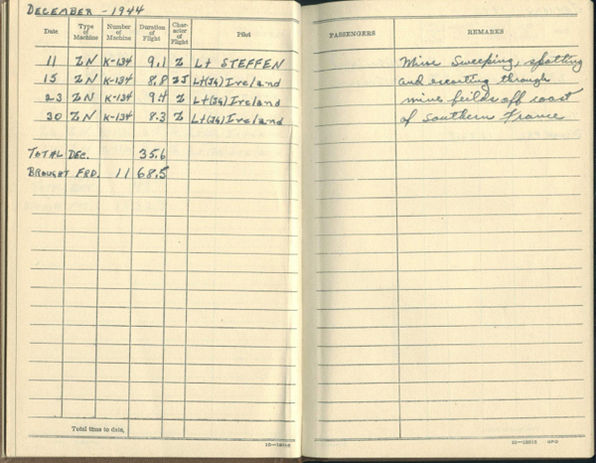 DECEMBER - 1944
Date Type of Machine Number of Machine Duration of Flight Character of Flight Pilot PASSENGERS REMARKS
11 ZN K-134 9.1 Z Lt STEFFEN Mine Sweeping, spotting
15 ZN K-134 8.8 ZJ Lt(JG) Ireland and escorting through
23 ZN K-134 9.4 Z Lt(JG) Ireland mine feilds off coast
30 ZN K-134 8.3 Z Lt(JG) Ireland of Southern France
TOTAL DEC. 35.6
BROUGHT FRD. 11 68.5
Total time to date,